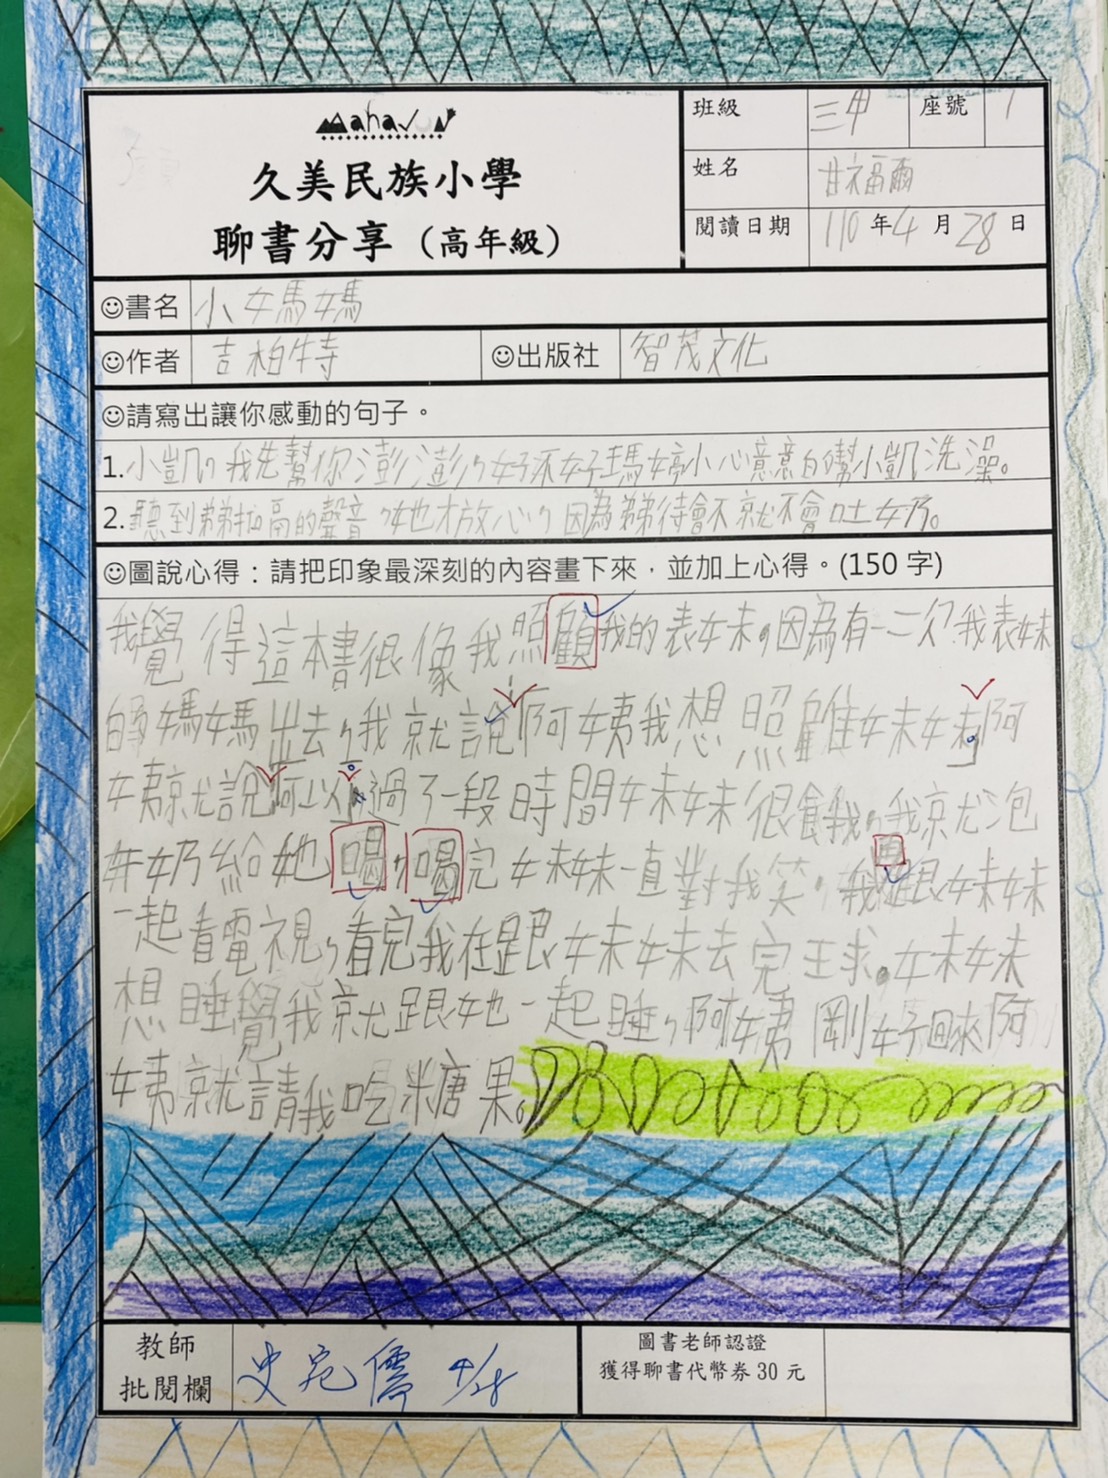 Mahavun
久美民族小學
聊書分享（高年級）
班級 三甲 座號 1
姓名 甘福爾
閱讀日期 110 年 4 月 28 日
☺書名 小媽媽
☺作者 吉柏特 ☺出版社 智茂文化
☺請寫出讓你感動的句子。
1.小凱，我先幫你澎澎，好不好?瑪婷小心意意的幫小凱洗澡。
2.聽到弟弟拍嗝的聲音，她才放心，因為弟弟待會不就不會吐奶。
☺圖說心得：請把印象最深刻的內容畫下來，並加上心得。(150 字)
我覺得這本書很像我照顧我的表妹，因為有一次我表妹
的媽媽出去，我就說阿姨我想照顧妹妹阿
姨就說可以過了一段時間妹妹很餓，我就泡
奶給她喝，喝完妹妹一直對我笑，我跟妹妹
一起看電視，看完我在跟妹妹去完球。妹妹
想睡覺我就跟她一起睡，阿姨剛好回來阿
姨就請我吃糖果。
教師
批閱欄 史宛儒 4/28
圖書老師認證
獲得聊書代幣券 30 元